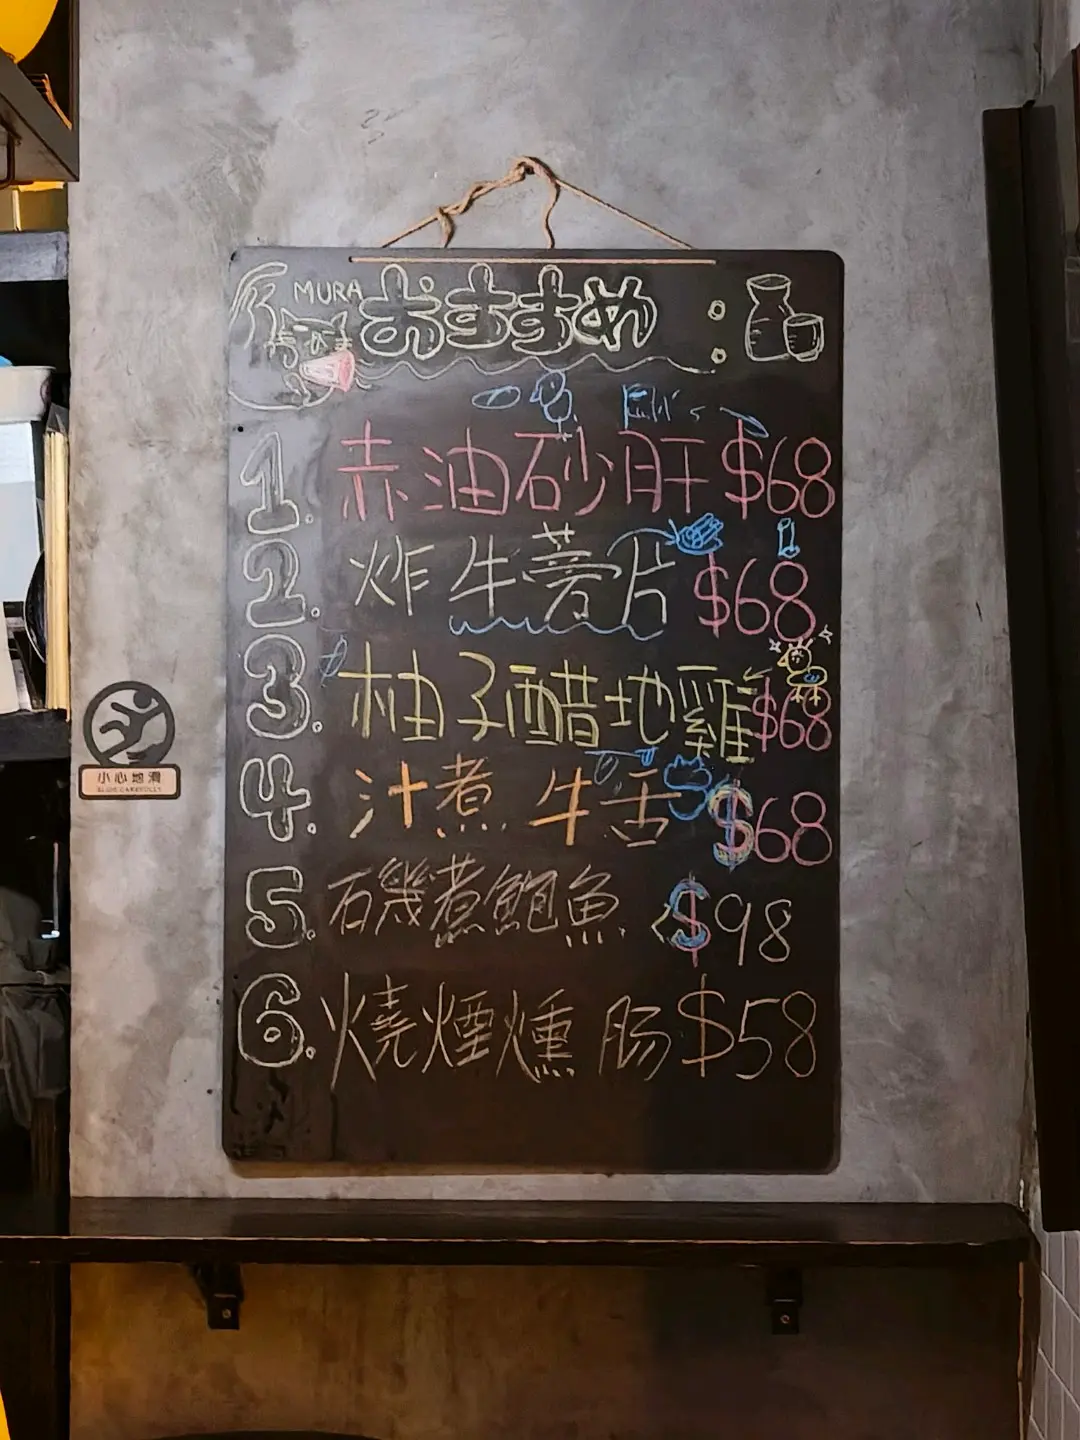 MURA おすすめ：
1. 赤油砂肝 $68
2. 炸牛蒡片 $68
3. 柚子醋地雞 $68
4. 汁煮牛舌 $68
5. 石磯煮鮑魚 $98
6. 燒煙燻腸 $58
小心地滑